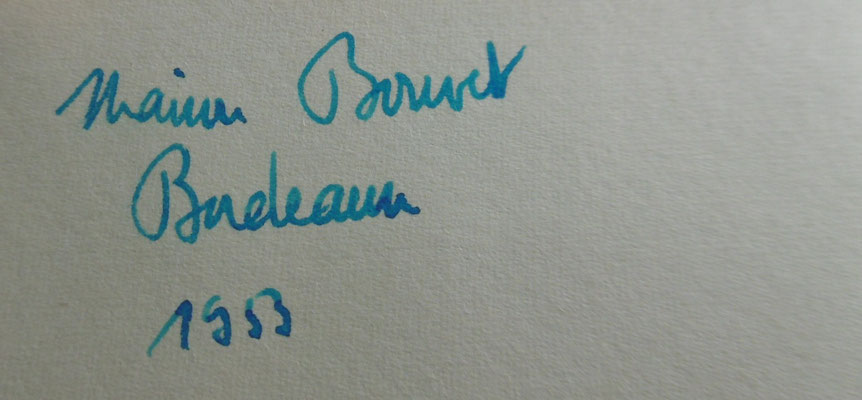 Maison Bouvet
Bordeaux
1953